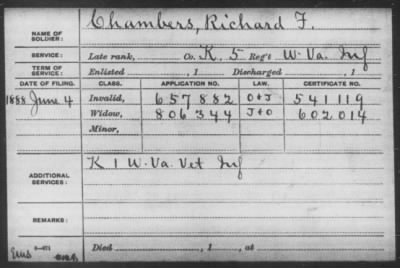 NAME OF SOLDIER: Chambers, Richard F.
SERVICE: Late rank, Co. K, 5 Reg't W. Va. Inf
TERM OF SERVICE: Enlisted , 1 Discharged , 1
DATE OF FILING. CLASS. APPLICATION NO. LAW. CERTIFICATE NO.
1888 June 4 Invalid, 657882 O+J 541119
Widow, 806344 J+O 602014
Minor,
ADDITIONAL SERVICES: K 1 W. Va. Vet Inf
REMARKS:
Died , 1 , at